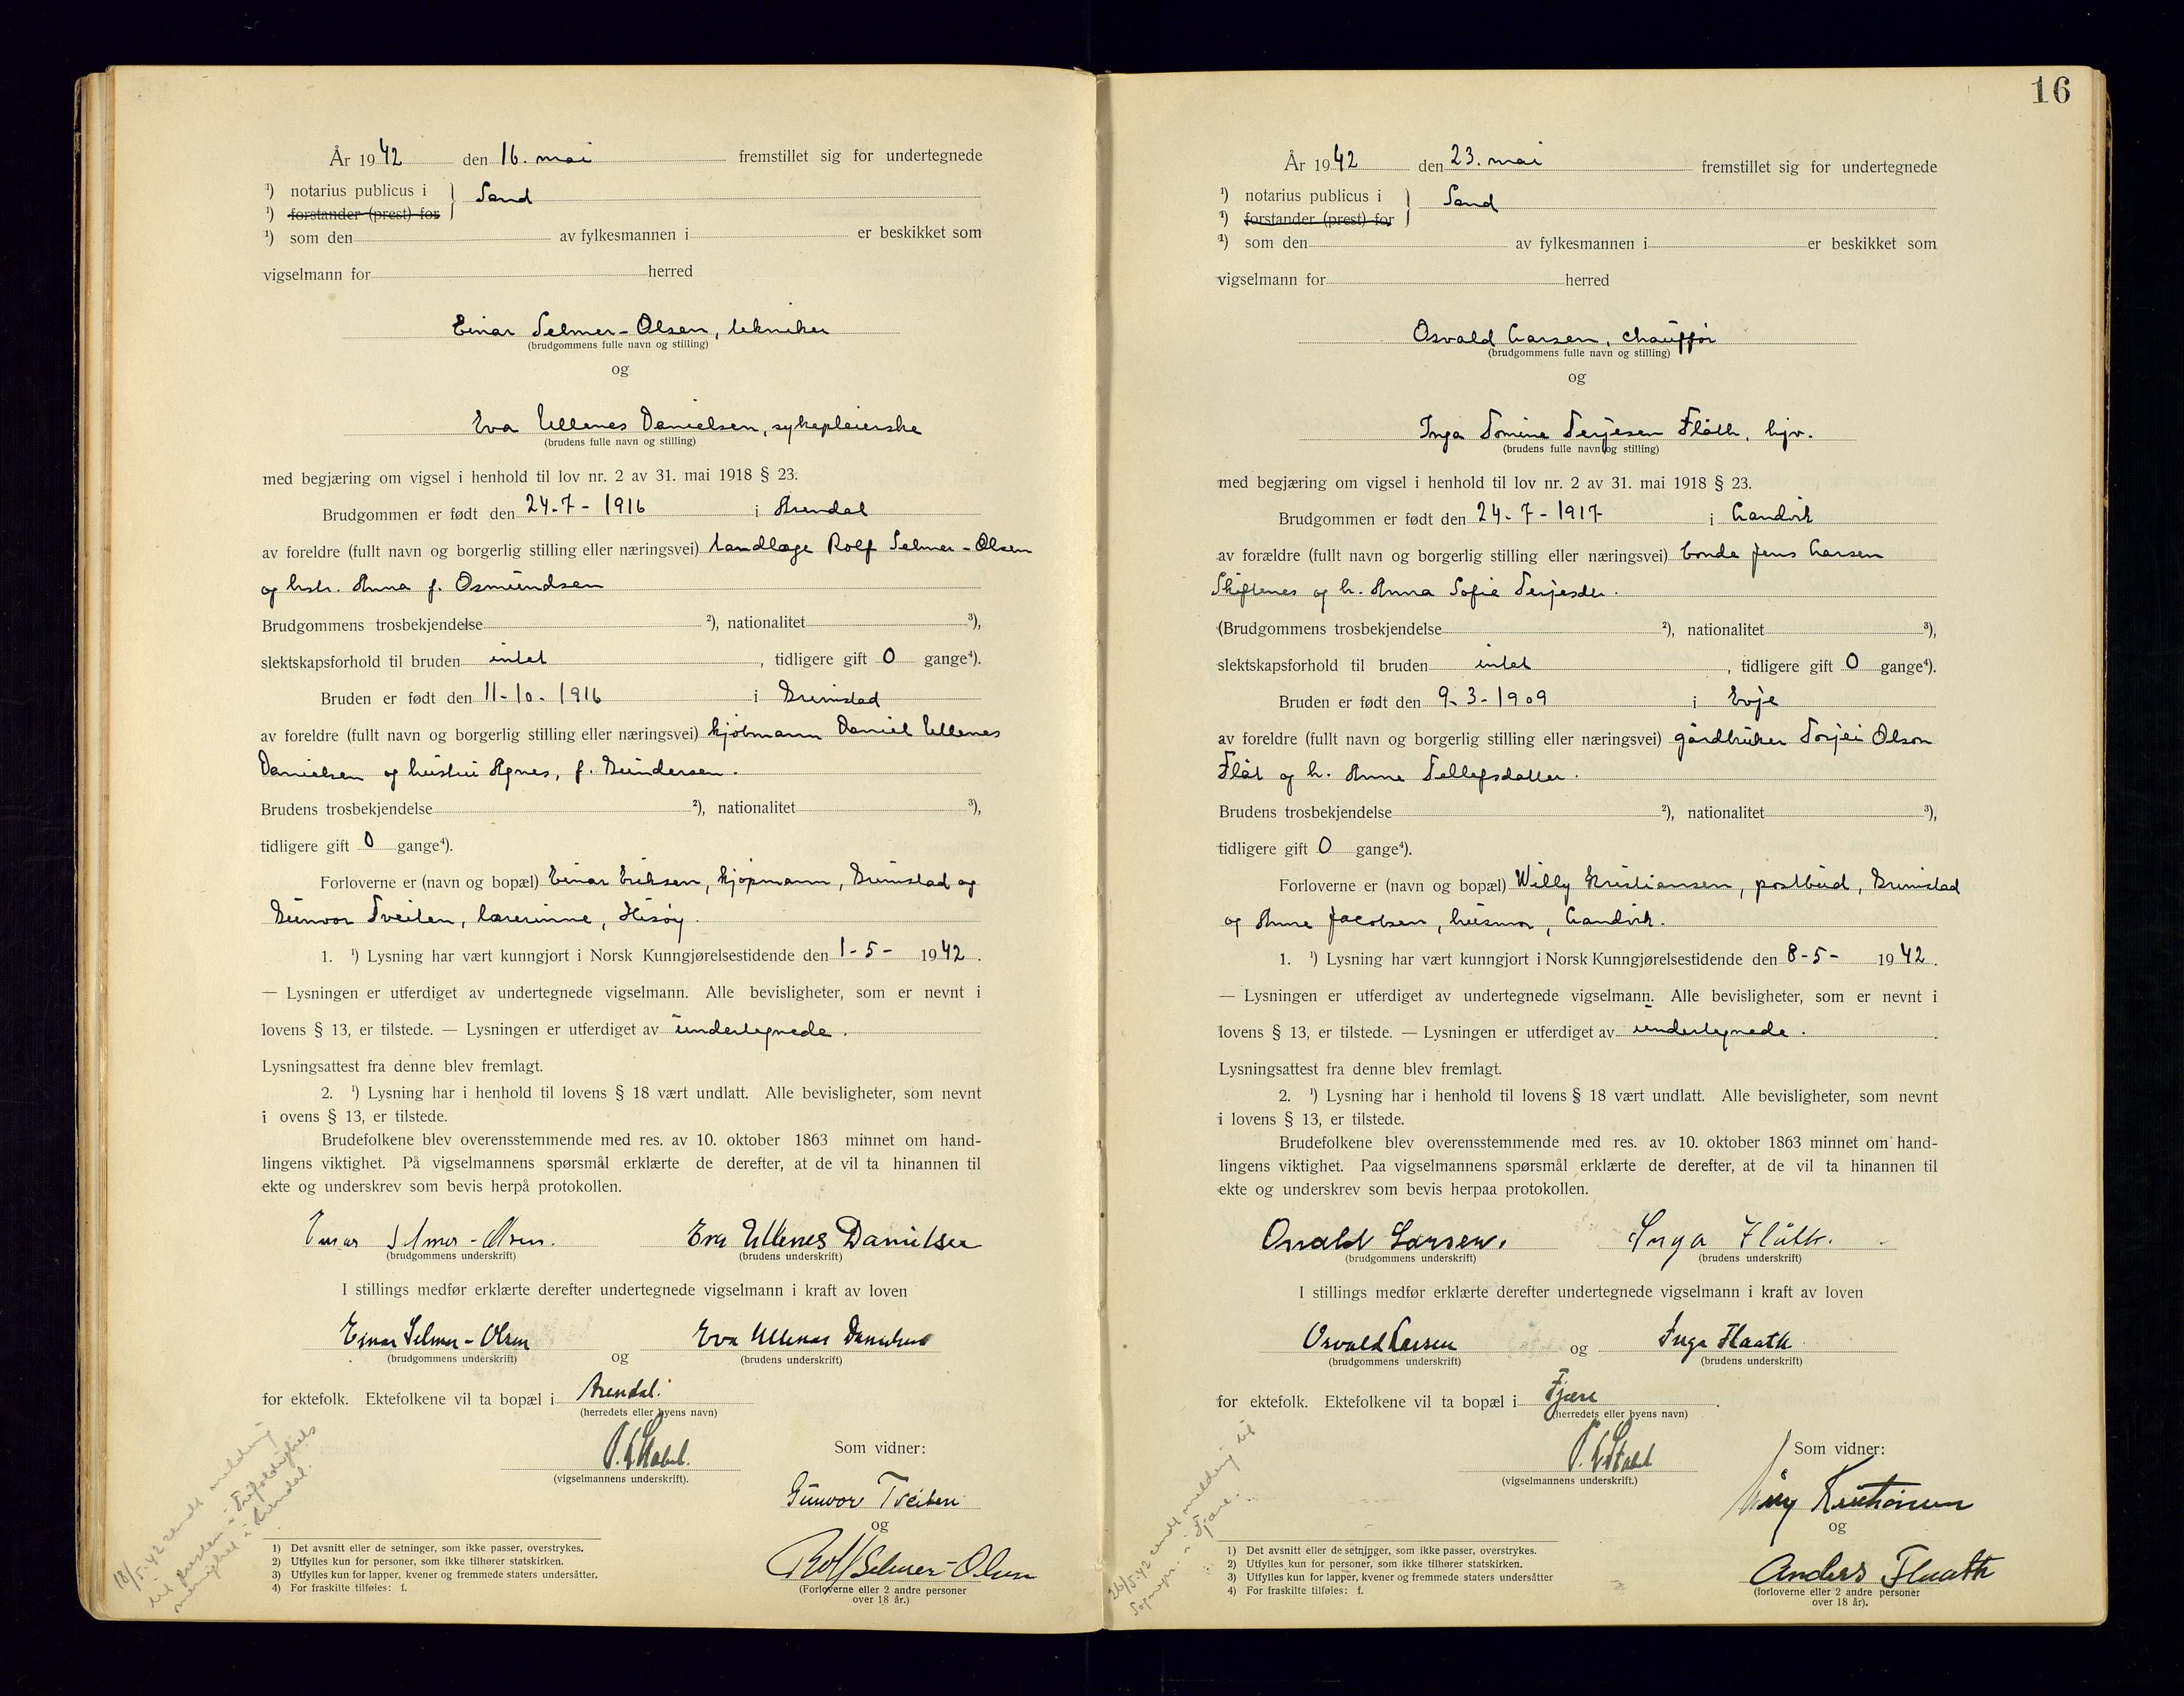 År 1942 den 16. mai fremstillet sig for undertegnede
1) notarius publicus i } Sand
1) forstander (prest) for
1) som den av fylkesmannen i er beskikket som
vigselmann for herred
Einar Selmer-Olsen, tekniker
(brudgommens fulle navn og stilling)
og
Eva Ullenes Danielsen, sykepleierske
(brudens fulle navn og stilling)
med begjæring om vigsel i henhold til lov nr. 2 av 31. mai 1918 § 23.
Brudgommen er født den 24-7-1916 i Arendal
av foreldre (fullt navn og borgerlig stilling eller næringsvei) tandlæge Rolf Selmer-Olsen
og hstr. Anna f. Osmundsen
Brudgommens trosbekjendelse 2), nationalitet 3),
slektskapsforhold til bruden intet, tidligere gift 0 gange4).
Bruden er født den 11-10-1916 i Grimstad
av foreldre (fullt navn og borgerlig stilling eller næringsvei) kjøbmann Daniel Ullenes
Danielsen og hustru Agnes, f. Gundersen.
Brudens trosbekjendelse 2), nationalitet 3),
tidligere gift 0 gange4).
Forloverne er (navn og bopæl) Einar Eriksen, kjøpmann, Grimstad og
Gunvor Tveiten, lærerinne, Hisøy.
1. 1) Lysning har vært kunngjort i Norsk Kunngjørelsestidende den 1-5- 1942.
— Lysningen er utferdiget av undertegnede vigselmann. Alle bevisligheter, som er nevnt i
lovens § 13, er tilstede. — Lysningen er utferdiget av undertegnede.
Lysningsattest fra denne blev fremlagt.
2. 1) Lysning har i henhold til lovens § 18 vært undlatt. Alle bevisligheter, som nevnt
i ovens § 13, er tilstede.
Brudefolkene blev overensstemmende med res. av 10. oktober 1863 minnet om hand-
lingens viktighet. På vigselmannens spørsmål erklærte de derefter, at de vil ta hinannen til
ekte og underskrev som bevis herpå protokollen.
Einar Selmer-Olsen. Eva Ullenes Danielsen
(brudgommens underskrift) (brudens underskrift)
I stillings medfør erklærte derefter undertegnede vigselmann i kraft av loven
Einar Selmer-Olsen og Eva Ullenes Danielsen
(brudgommens underskrift) (brudens underskrift)
for ektefolk. Ektefolkene vil ta bopæl i Arendal.
(herredets eller byens navn)
Som vidner:
(vigselmannens underskrift).
Gunvor Tveiten
og
Rolf Selmer-Olsen
(Forloverne eller 2 andre personer
over 18 år.)
18/5-42 sendt melding
til presten i Trefoldighets
menighet i Arendal.
1) Det avsnitt eller de setninger, som ikke passer, overstrykes.
2) Utfylles kun for personer, som ikke tilhører statskirken.
3) Utfylles kun for lapper, kvener og fremmede staters undersåtter.
4) For fraskilte tilføies: f.
16
År 1942 den 23. mai fremstillet sig for undertegnede
1) notarius publicus i } Sand
1) forstander (prest) for
1) som den av fylkesmannen i er beskikket som
vigselmann for herred
Osvald Larsen, chauffør
(brudgommens fulle navn og stilling)
og
Inga Tomine Terjesen Flåth, hjv.
(brudens fulle navn og stilling)
med begjæring om vigsel i henhold til lov nr. 2 av 31. mai 1918 § 23.
Brudgommen er født den 24-7-1917 i Landvik
av forældre (fullt navn og borgerlig stilling eller næringsvei) bonde Jens Larsen
Skiftenes og h. Anna Sofie Terjesdtr.
(Brudgommens trosbekjendelse 2), nationalitet 3),
slektskapsforhold til bruden intet, tidligere gift 0 gange4).
Bruden er født den 9-3-1909 i Evje
av foreldre (fullt navn og borgerlig stilling eller næringsvei) gårdbruker Torjei Olson
Flåt og h. Anne Tellefsdatter.
Brudens trosbekjendelse 2), nationalitet 3),
tidligere gift 0 gange4).
Forloverne er (navn og bopæl) Willy Kristiansen, postbud, Grimstad
og Anne Jacobsen, husmor, Landvik.
1. 1) Lysning har vært kunngjort i Norsk Kunngjørelsestidende den 8-5- 1942.
— Lysningen er utferdiget av undertegnede vigselmann. Alle bevisligheter, som er nevnt i
lovens § 13, er tilstede. — Lysningen er utferdiget av undertegnede.
Lysningsattest fra denne blev fremlagt.
2. 1) Lysning har i henhold til lovens § 18 vært undlatt. Alle bevisligheter, som nevnt
i lovens § 13, er tilstede.
Brudefolkene blev overensstemmende med res. av 10. oktober 1863 minnet om hand-
lingens viktighet. Paa vigselmannens spørsmål erklærte de derefter, at de vil ta hinannen til
ekte og underskrev som bevis herpaa protokollen.
Osvald Larsen. Inga Flåth.
(brudgommens underskrift) (brudens underskrift)
I stillings medfør erklærte derefter undertegnede vigselmann i kraft av loven
Osvald Larsen og Inga Flaath
(brudgommens underskrift) (brudens underskrift)
for ektefolk. Ektefolkene vil ta bopæl i Fjære.
(herredets eller byens navn)
Som vidner:
(vigselmannens underskrift.)
Willy Kristiansen
og
Anders Flaath
(forloverne eller 2 andre personer
over 18 år).
26/5-42 sendt melding til
Sognepr. i Fjære.
1) Det avsnitt eller de setninger, som ikke passer, overstrykes.
2) Utfylles kun for personer, som ikke tilhører statskirken.
3) Utfylles kun for lapper, kvener og fremmede staters undersåtter
4) For fraskilte tilføies: f.